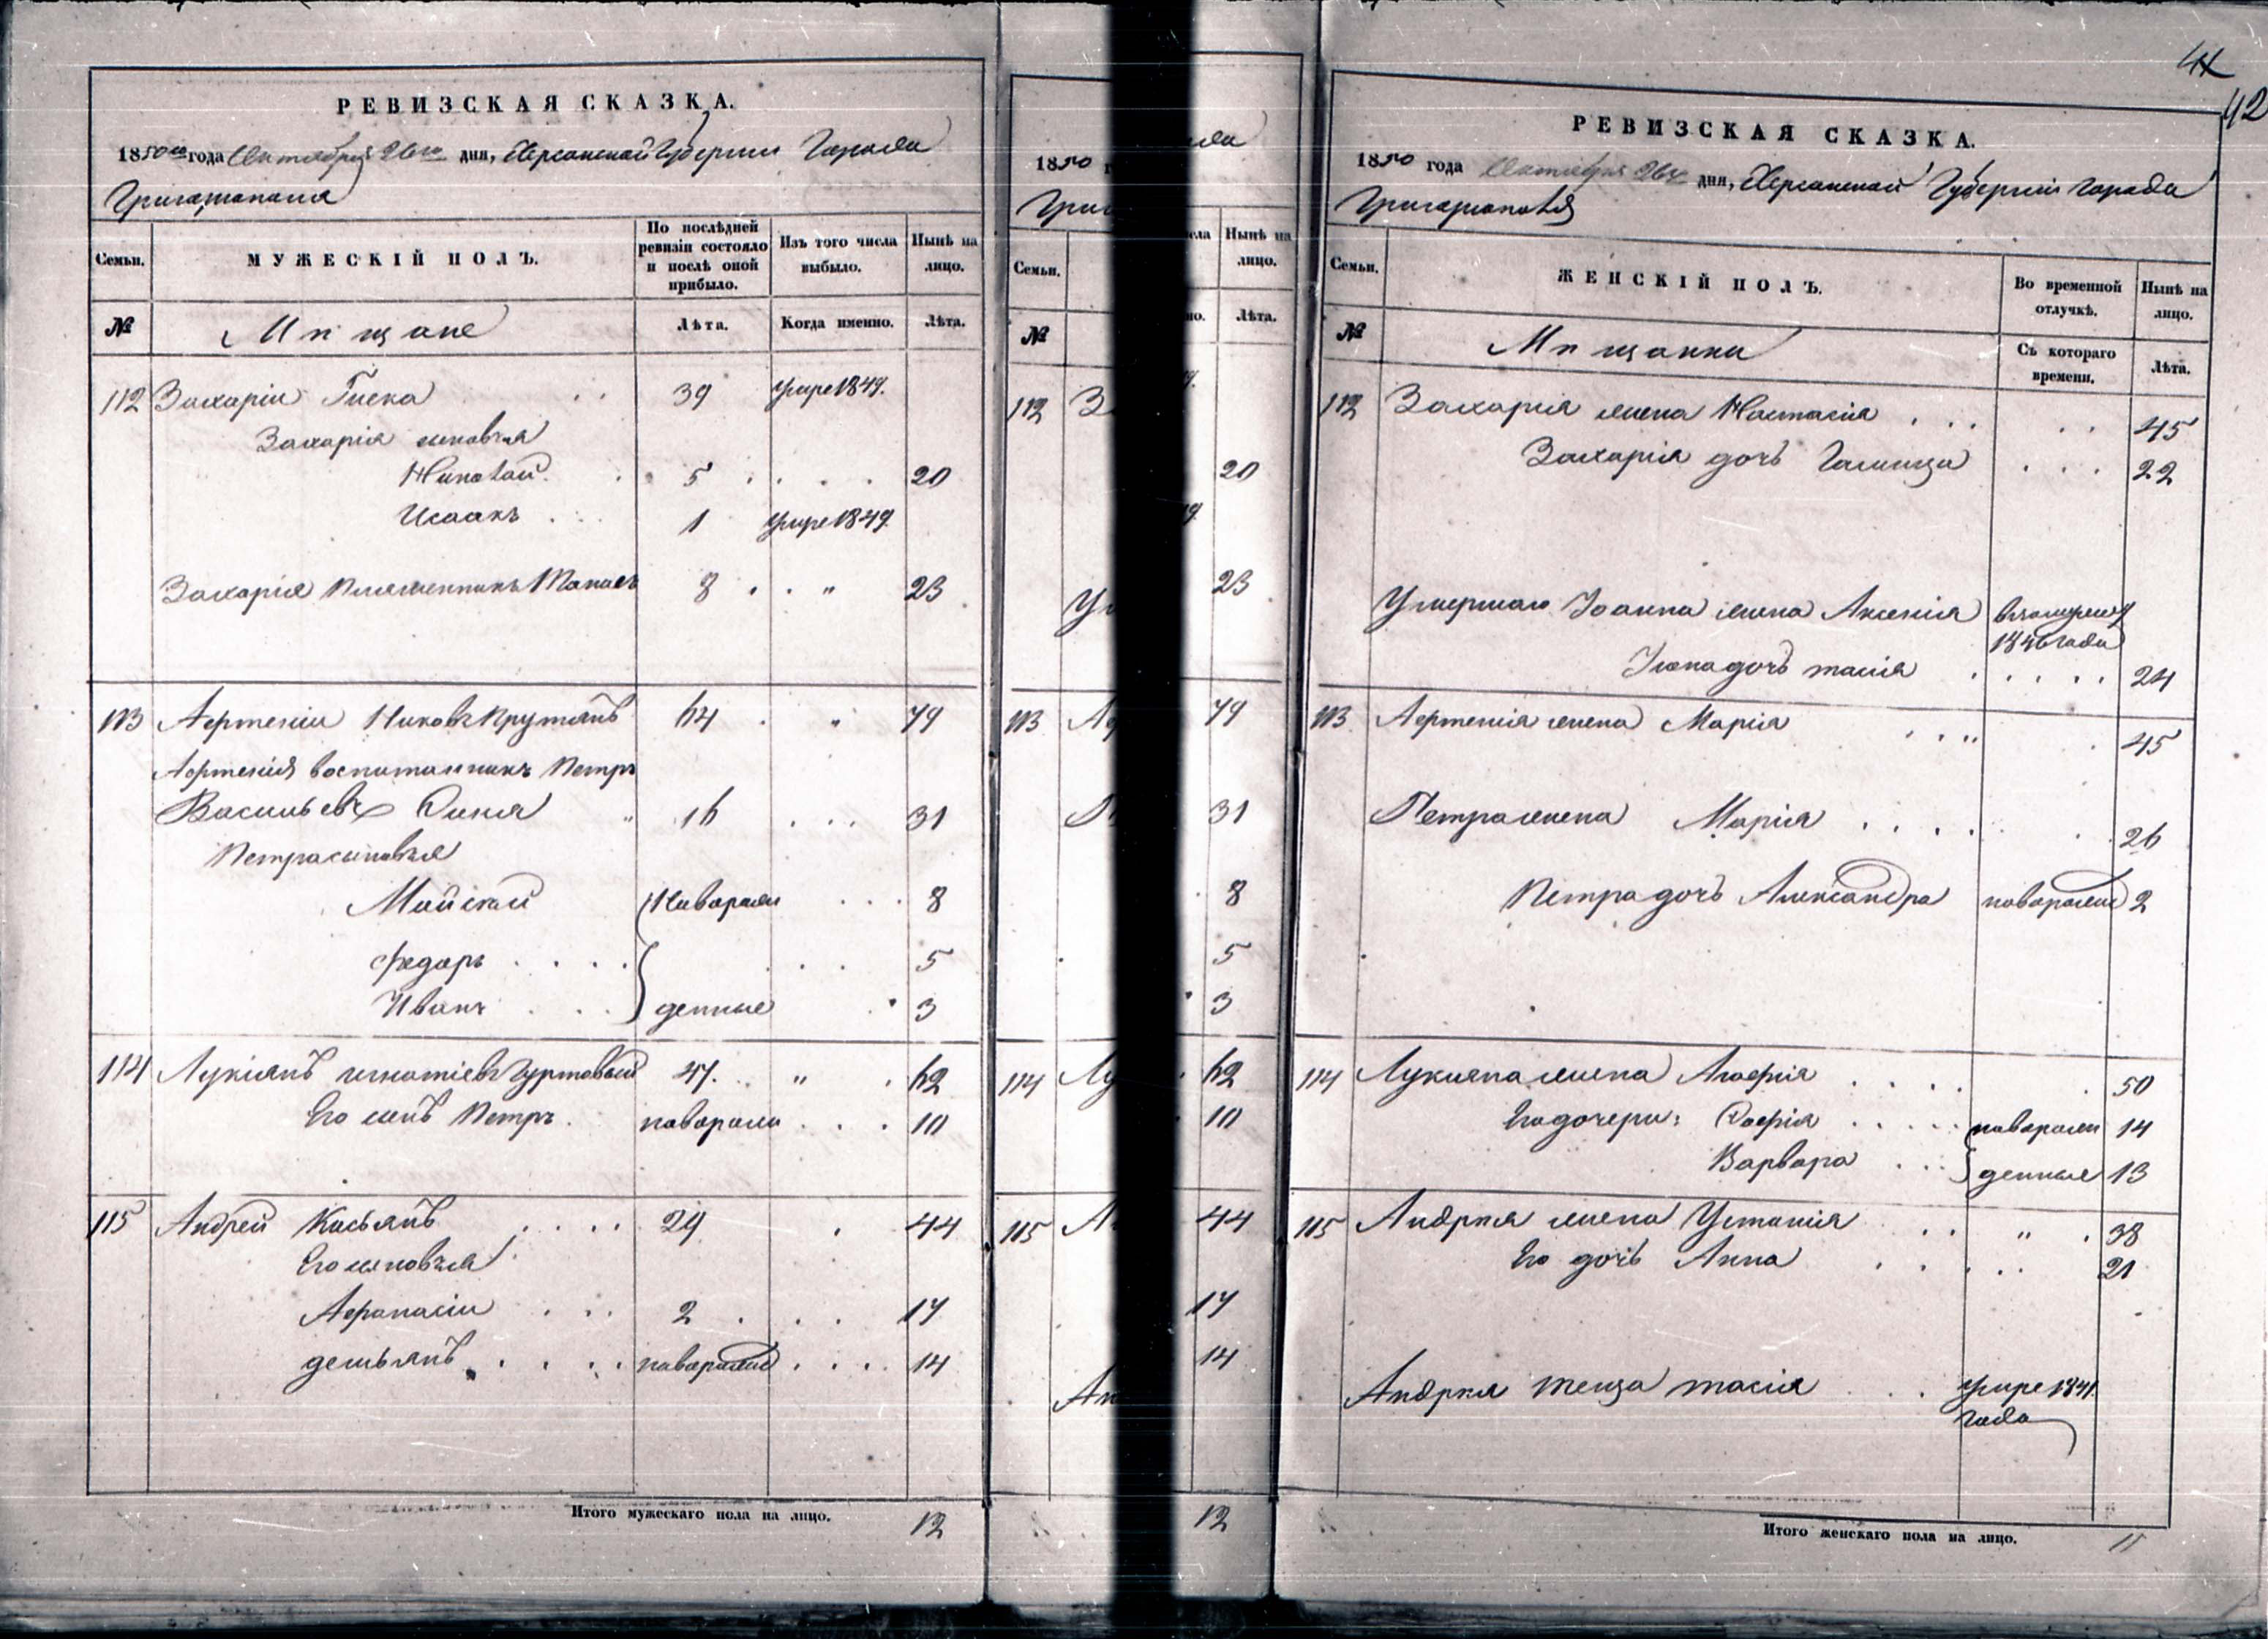 РЕВИЗСКАЯ СКАЗКА.
1850го года Октября 26го дня, Херсонской Губернии Города
Григориополя
Семьи. МУЖЕСКІЙ ПОЛЪ. По послѣдней ревизіи состояло и послѣ оной прибыло. Изъ того числа выбыло. Нынѣ на лицо.
№ Мѣщане Лѣта. Когда именно. Лѣта.
112 Захарій Гиска . . 39 умре 1849.
Захарія сыновья
Николай . 5 . . . . 20
Исаакъ . . . 1 умре 1849.
Захарія племенникъ 8 . . " 23
113 Артеній 64 . " 79
Артенія воспитанникъ Петръ
Васильевъ " 16 . . . 31
Петра сыновья
Мойсей новорож . . . 8
Федоръ . . . . . . . 5
Иванъ . . . денные . 3
114 Лукіянъ Игнатіевъ Гуртовый 47. " . 62
Его сынъ Петръ . новорож . . . 10
115 Андрей Касьянъ . . . . 29 . 44
Его сыновья
Афонасій . . . 2 . . . 17
демьянъ . . . . новорожд . . . . 14
Итого мужескаго пола на лицо. 12
1850 г
Григ
ода
Семьи. Нынѣ на лицо.
№ Лѣта.
112 З
20
23
Ум
113 А 79
П 31
8
5
3
114 Лу 62
10
115 А 44
17
14
Ан
12
41
42
РЕВИЗСКАЯ СКАЗКА.
1850 года Октября 26го дня, Херсонской Губерніи города
Григориополя
Семьи. ЖЕНСКІЙ ПОЛЪ. Во временной отлучкѣ. Нынѣ на лицо.
№ Мѣщанки Съ котораго времени. Лѣта.
112 Захарія жена Настасія . . . . . 45
Захарія дочь . . . 22
Умершаго Іоанна жена Аксенія
1846 года
дочь тасія . . . . . 24
113 Артенія жена Марія . . " . 45
Петра жена Марія . . . . . 26
Петра дочь Александра новорожд 2
114 Лукияна жена Агафія . . . . . 50
Его дочери: Софія . . . . . новорож 14
Варвара . . . денные 13
115 Андрея жена Устинія . . " . 38
Его дочь Анна . . . . . 21
Андрея теща тасія . . умре 1841.
года
Итого женскаго пола на лицо. 11